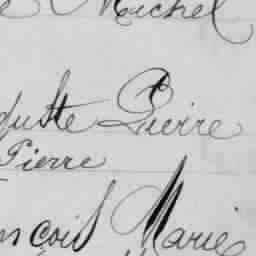 Michel
guste Pierre
Pierre
ncois Marie